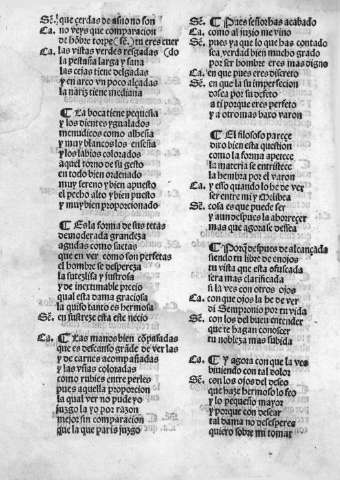 Sē. que cerdas de asno no son
Ca. no veys que comparacion
de hōbre torpe (Sē.) tu eres cuer
Ca. las vistas verdes rasgadas (do
la pestaña larga y sana
las cejas tiene delgadas
y en arco vn poco alçadas
la nariz tiene mediana
¶ La boca tiene pequeña
y los dientes ygualados
menudicos como alheña
y muy blancos los enseña
y los labios colorados
aquel torno de su gesto
en todo bien ordenado
muy sereno y bien apuesto
el pecho alto y bien puesto
y muy bien proporcionado
¶ Es la forma de sus tetas
de moderada grandeza
agudas como saetas
que en ver como son perfetas
el hombre se despereza
la su tez lisa y lustrosa
y de inextimable precio
qual esta dama graciosa
la quiso tanto es hermosa
Sē. en sus treze esta este necio
Ca. ¶ Las manos bien cōpasadas
que es descanso grāde de ver las
y de carnes acompañadas
y las vñas coloradas
como rubies entre perlas
pues aquella proporcion
la qual ver no pude yo
juzgo la yo por razon
mejor sin comparacion
que la que paris juzgo
Sē. ¶ Pues señor has acabado
Ca. como al juzio me vino
Sē. pues ya que lo que has contado
sea verdad bien mucho grado
por ser hombre eres mas digno
Ca. en que pues eres discreto
Sē. en que la su imperfecion
dessea por su defeto
a ti por que eres perfeto
y a otro mas baxo varon
¶ El filosofo parece
diro bien esta question
como la forma apetece
la materia se entristece
la hembra por el varon
Ca. y esso quando lo he de ver
ser entre mi y Melibea
Sē. cosa es que puede ser
y aun despues la aborreçer
mas que agora se dessea
¶ Porq̄ despues de alcançada
siendo tu libre de enojos
tu vista que esta ofuscada
sera mas clarificada
si la ves con otros ojos
Ca. con que ojos la he de ver
di Sempronio por tu vida
Sē. con los del buen entender
que te hagan conoscer
tu nobleza mas subida
Ca. ¶ Y agora con que la veo
biuiendo con tal dolor
Sē. con los ojos del deseo
que haze hermoso lo feo
y lo pequeño mayor
y porque con desear
tal dama no desesperes
quiero sobre mi tomar